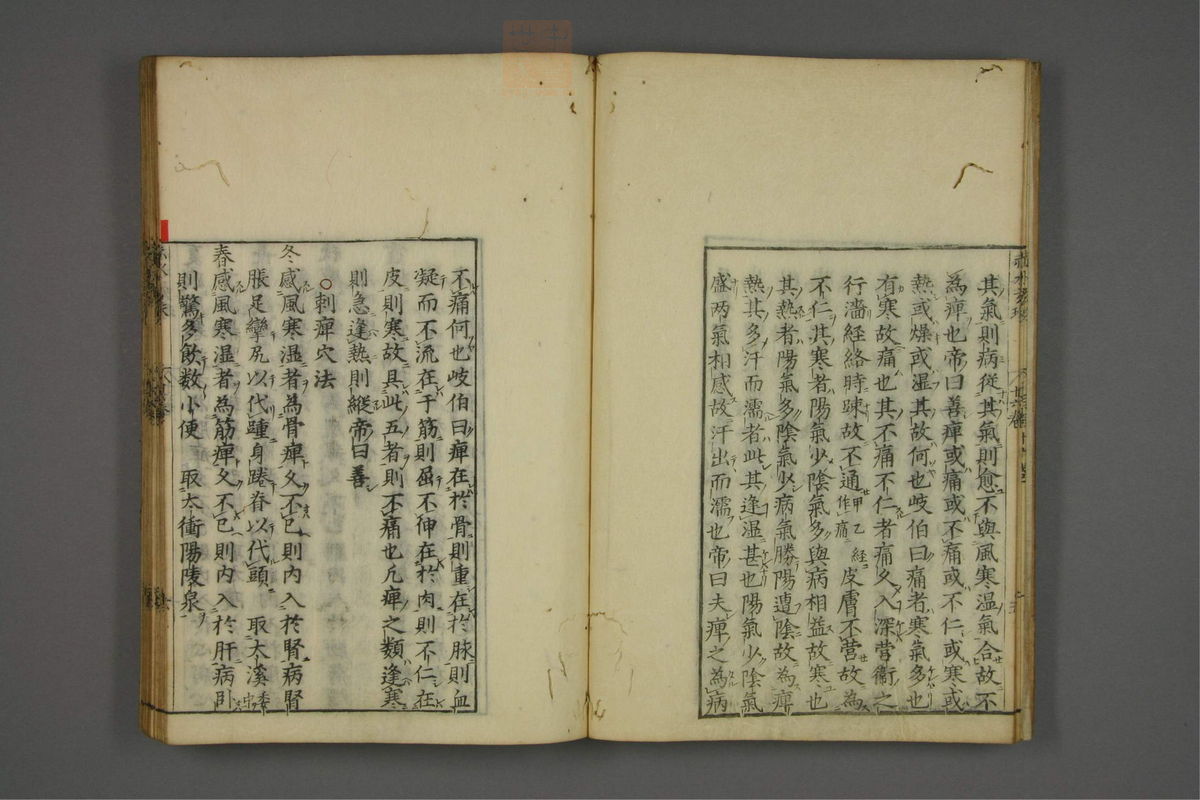 其氣則病從其氣則愈不與風寒温氣合故不
為痺也帝曰善痺或痛或不痛或不仁或寒或
熱或燥或湿其故何也岐伯曰痛者寒氣多也
有寒故痛也其不痛不仁者痛久入深営衞之
行濇経絡時踈故不通甲乙経作痛皮膚不営故為
不仁其寒者陽氣少陰氣多與病相益故寒也
其熱者陽氣多陰氣少病氣勝陽遭陰故為痺
熱其多汗而濡者此其逢湿甚也陽氣少陰氣
盛两氣相感故汗出而濡也帝曰夫痺之為病
不痛何也岐伯曰痺在於骨則重在於脉則血
凝而不流在于筋則屈不伸在於肉則不仁在
皮則寒故具此五者則不痛也凢痺之類逢寒
則急逢熱則縱帝曰善
○刺痺穴法
冬感風寒湿者為骨痺久不已則内入於腎病腎
脹足攣尻以代踵身踡脊以代頭 取太溪委中
春感風寒湿者為筋痺久不已則内入於肝病卧
則驚多飲数小便 取太衝陽陵泉